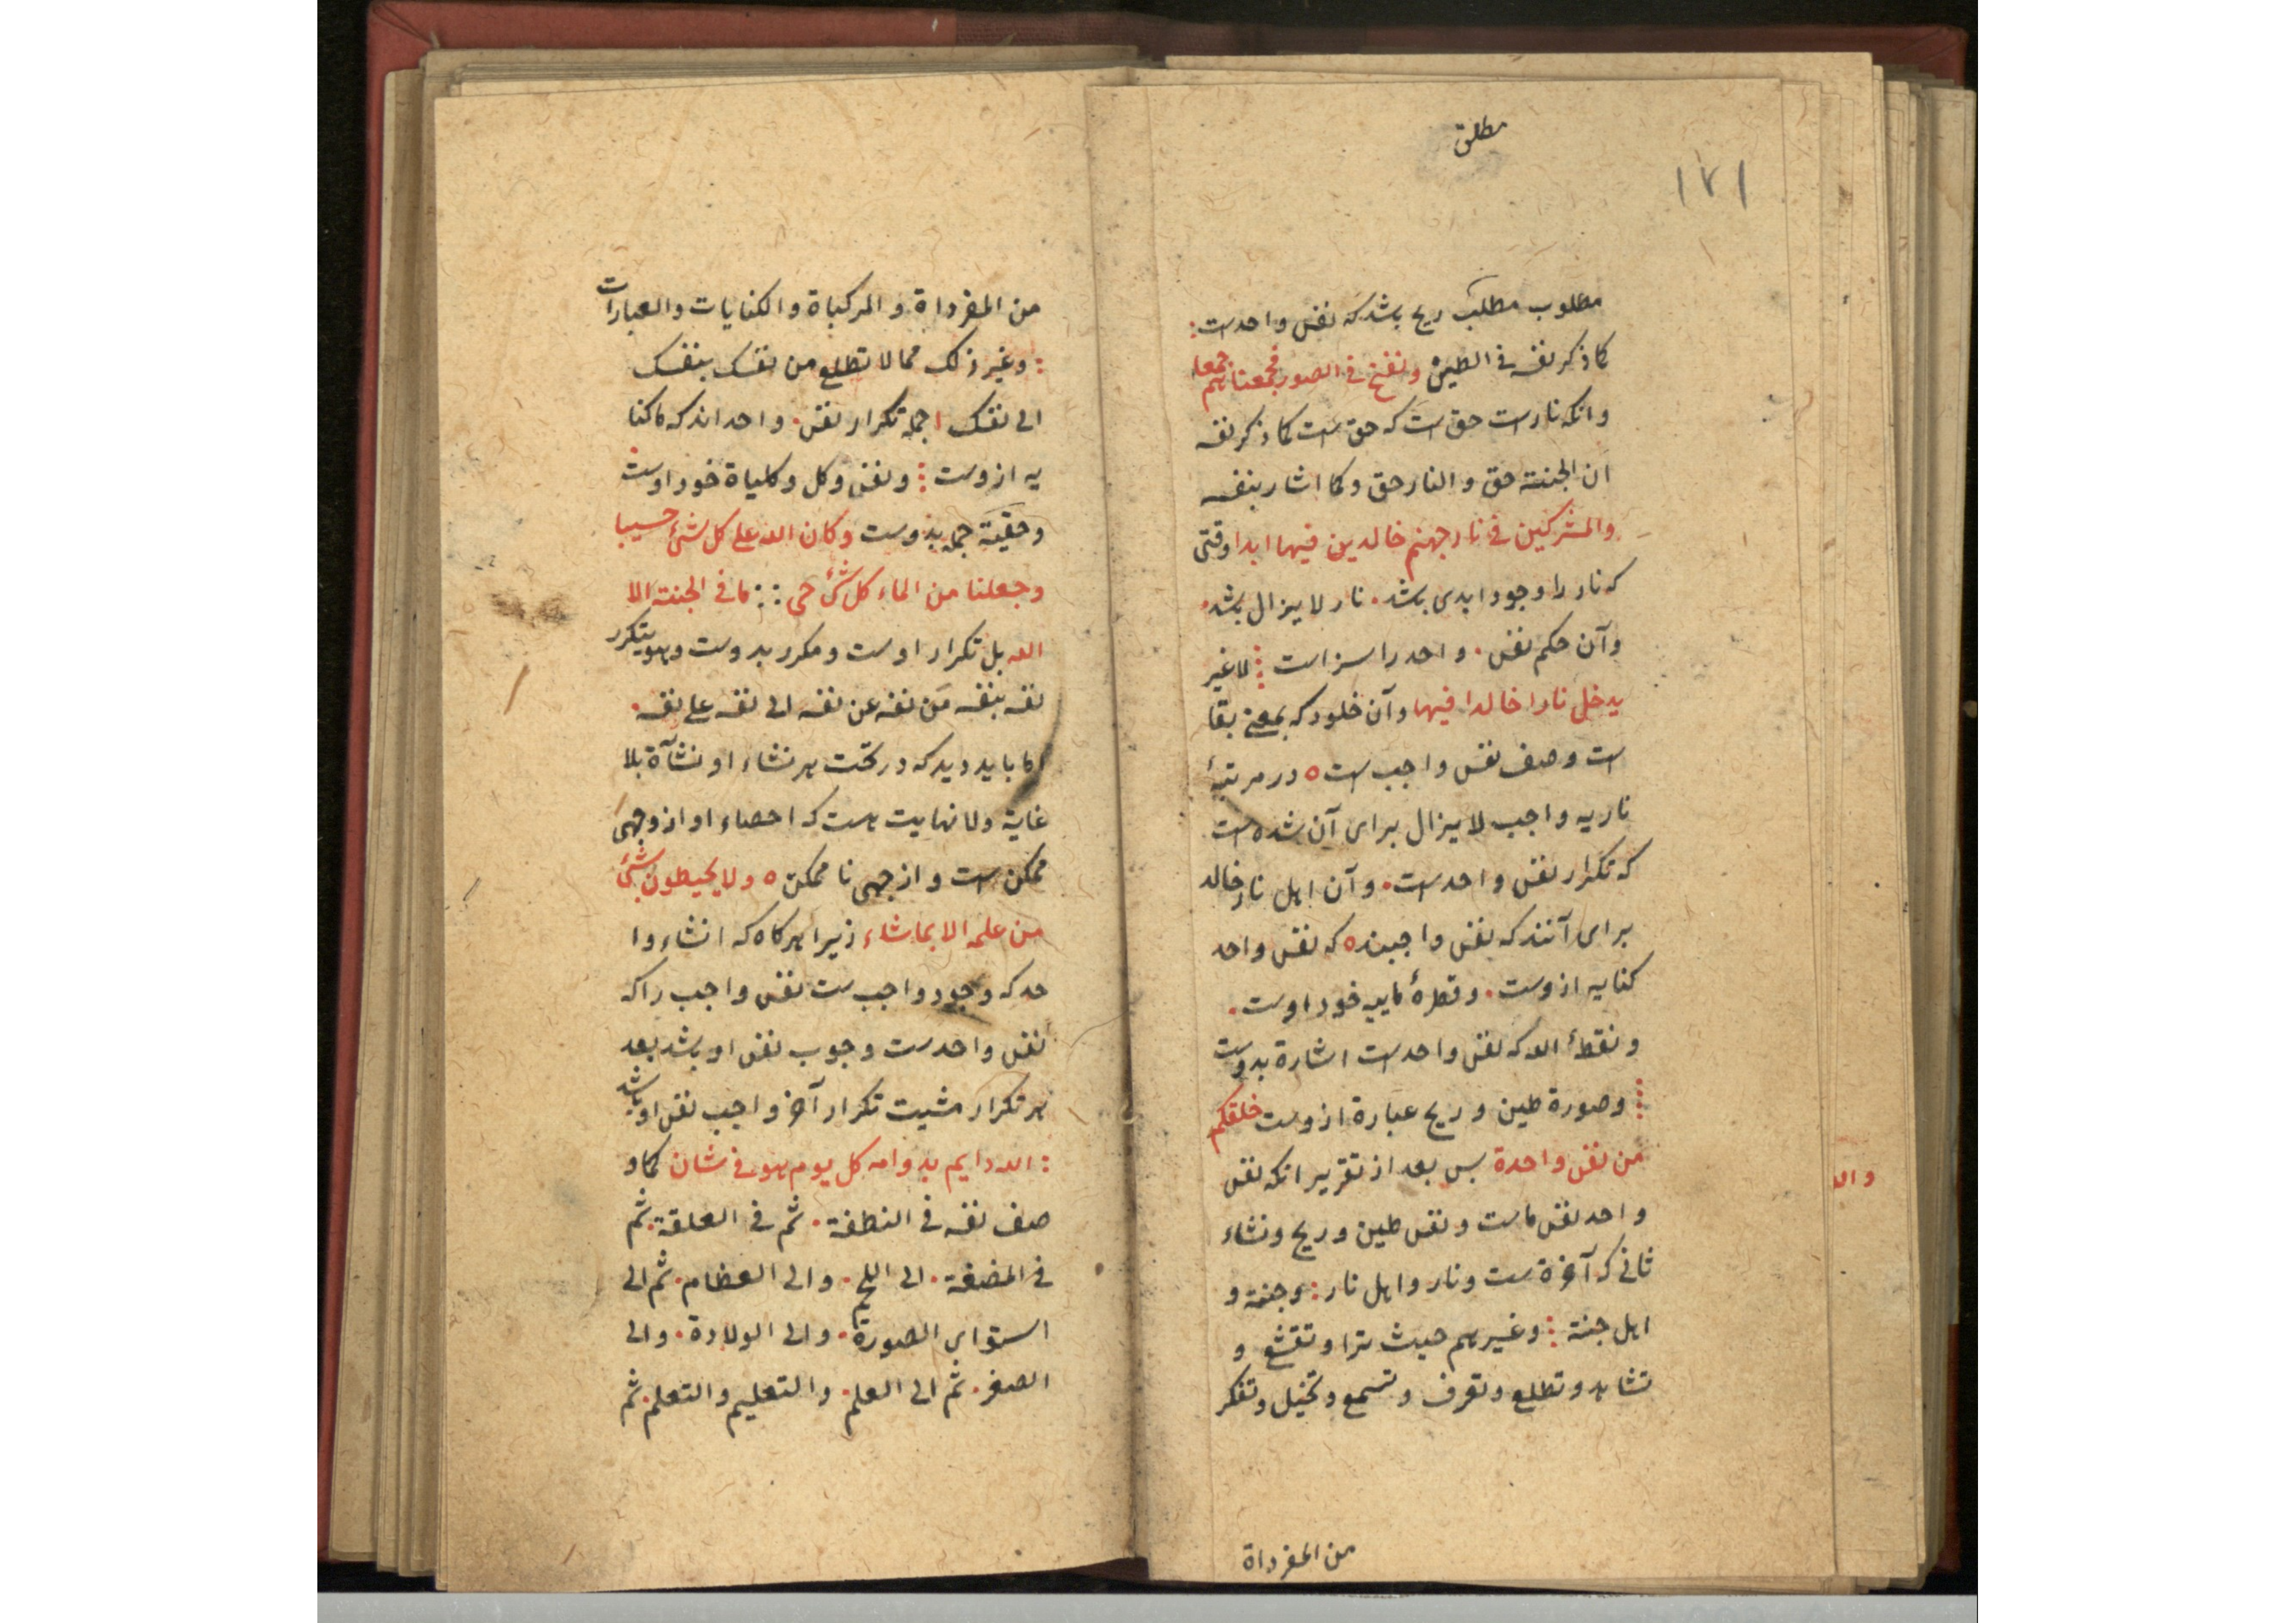 مطلق
۱۷۱
مطلوب مطلب ریح باشد که نفس واحدست
کما ذکر نفسه فی الطین و نفخ فی الصور فجمعناهم جمعا
وانکه نارست حق است که حق است کما ذکر نفسه
ان الجنته حق و النار حق و کما اشار بنفسه
والمشرکین فی نار جهنم خالدین فیها ابدا وقتی
که نار را وجود ابدی باشد نار لایزال باشد
وآن حکم نفس واحد را سزاست لاغیر
یدخل نارا خالدا فیها وآن خلود که بمعنی بقا
است وصف نفس واجب است در مرتبهٔ
ناریه واجب لایزال برای آن شده است
که تکرار نفس واحدست وآن اهل نار خالد
برای آنند که نفس واجبند که نفس واحد
کنایه ازوست و قطرهٔ مایه خود اوست
ونقطهٔ الله که نفس واحدست اشارة بدوست
وصورة طین و ریح عبارة ازوست خلقکم
من نفس واحدة بس بعد از تقریر انکه نفس
واحد نفس ماست ونفس طین وریح ونشاء
ثانی که آخرة ست ونار واهل نار وجنة و
اهل جنة وغیرهم حیث ترا وتقشع و
تشاهد وتطلع وتعرف وتسمع وتخیل وتفکر
من المفرداة
من المفرداة و المرکباة والکنایات والعبارات
وغیر ذلک مما لا تطلع من نفسک بنفسک
الی نفسک اجمله تکرار نفس واحد اند که ما کنا
یه ازوست ونفس وکل وکلیاة خود اوست
وحقیقة جمله بدوست وکان الله علی کل شیٔ حسیبا
وجعلنا من الماء کل شیٔ حی ما فی الجنته الا
الله بل تکرار اوست ومکرر بدوست وهو یتکرر
نفسه بنفسه من نفسه عن نفسه الی نفسه علی نفسه
اما باید دید که در تحت هر نشاء او نشآة بلا
غایة ولا نهایت هست که احصاء او از وجهی
ممکن است و از جهی نا ممکن ولا یحیطون بشیٔ
من علمه الا بما شاء زیرا هر کاه که انشاء وا
حد که وجود واجب ست نفس واجب را که
نفس واحدست وجوب نفس او باشد بعد
هر تکرار مشیت تکرار آخر واجب نفس او باشد
الله دایم بدوامه کل یوم هو فی شان کما و
صف نفسه فی النطفة ثم فی العلقة ثم
فی المضغة الی اللحم والی العظام ثم الی
استوای الصورة والی الولادة والی
الصغر ثم الی العلم والتعلیم والتعلم ثم